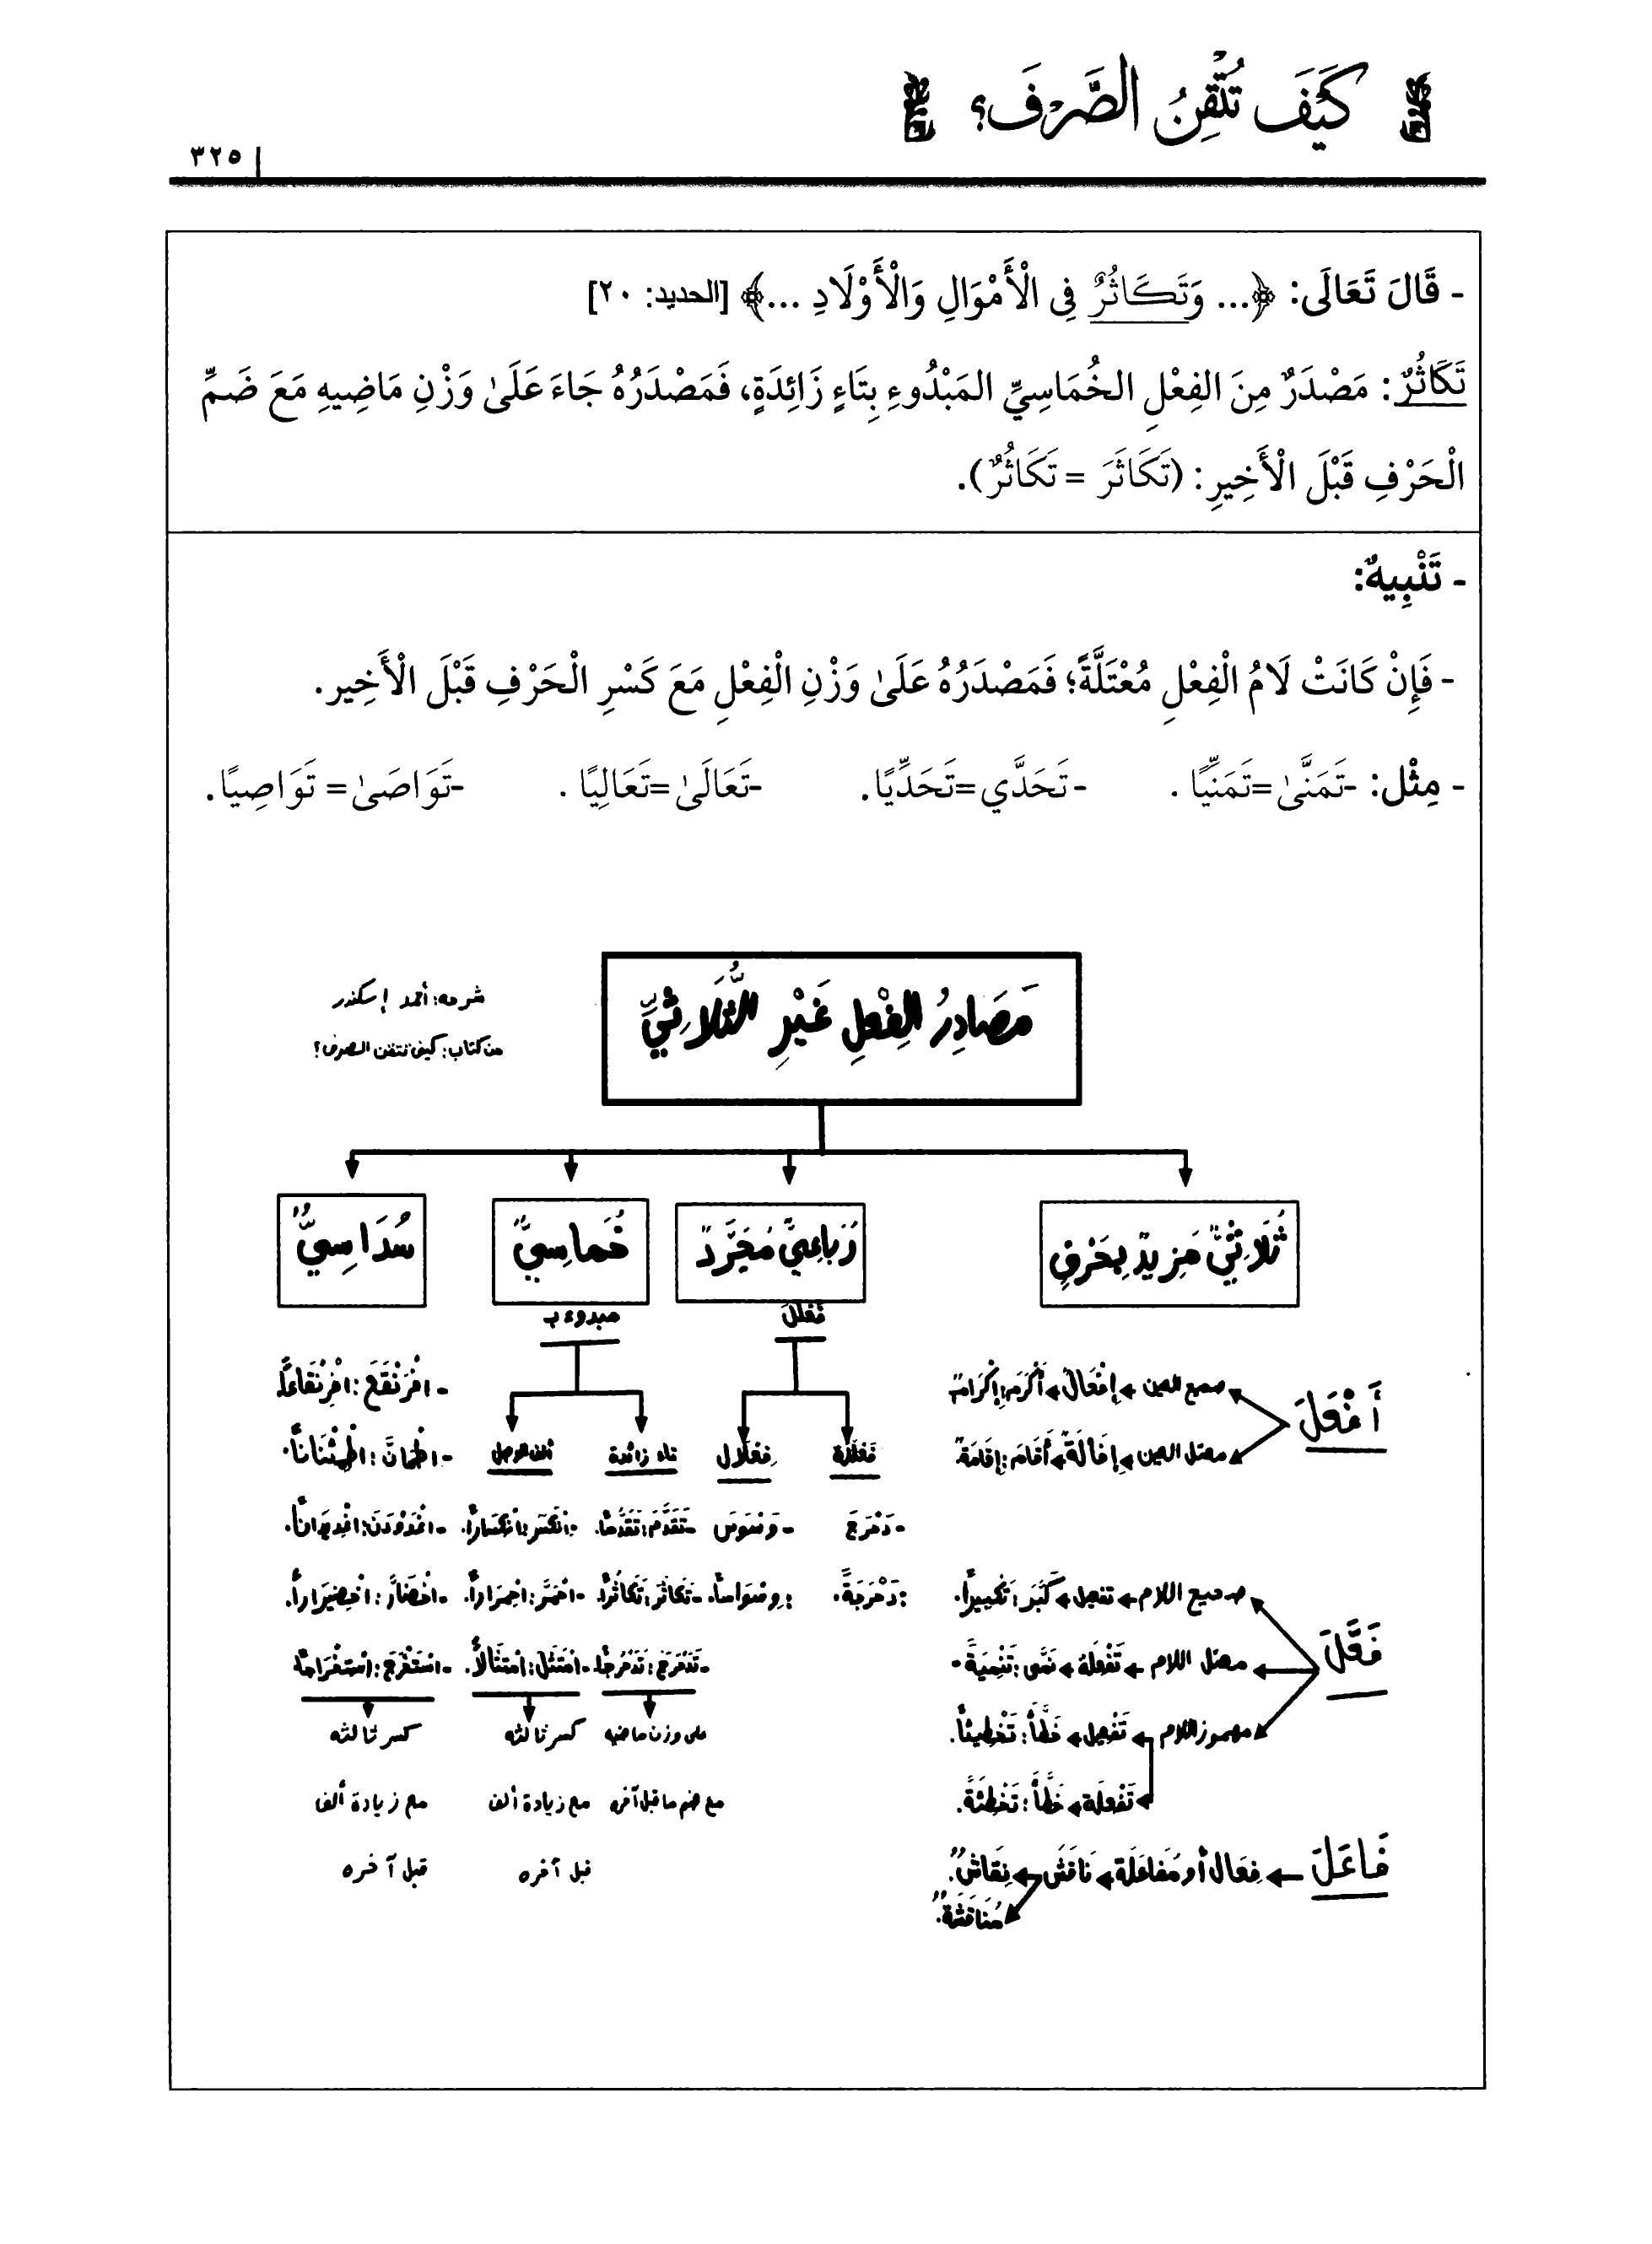 كَيْفَ تُتْقِنُ الصَّرْفَ؟
٣٢٥
- قَالَ تَعَالَى: ﴿... وَتَكَاثُرٌ فِى الْأَمْوَالِ وَالْأَوْلَادِ ...﴾ [الحديد: ٢٠]
تَكَاثُرٌ: مَصْدَرٌ مِنَ الفِعْلِ الخُمَاسِيِّ المَبْدُوءِ بِتَاءٍ زَائِدَةٍ، فَمَصْدَرُهُ جَاءَ عَلَىٰ وَزْنِ مَاضِيهِ مَعَ ضَمِّ
الْحَرْفِ قَبْلَ الْأَخِيرِ: (تَكَاثَرَ = تَكَاثُرٌ).
- تَنْبِيهٌ:
- فَإِنْ كَانَتْ لَامُ الْفِعْلِ مُعْتَلَّةً؛ فَمَصْدَرُهُ عَلَىٰ وَزْنِ الْفِعْلِ مَعَ كَسْرِ الْحَرْفِ قَبْلَ الْأَخِيرِ.
- مِثْل: -تَمَنَّىٰ=تَمَنِّيًا . - تَحَدَّي=تَحَدِّيًا. -تَعَالَىٰ=تَعَالِيًا . -تَوَاصَىٰ= تَوَاصِيًا.
مَصَادِرُ الفِعْلِ غَيْرِ الثُّلَاثِيِّ
شرحه: أحمد إسكندر
من كتاب: كيف تتقن الصرف؟
ثُلَاثِيٌّ مَزِيدٌ بِحَرْفٍ
رُبَاعِيٌّ مُجَرَّدٌ
خُمَاسِيٌّ
سُدَاسِيٌّ
أَفْعَلَ
صحيح العين ← إِفْعَال ← أَكْرَم: إِكْرَام
معتل العين ← إِفَالَة ← أَقَامَ: إِقَامَة
فَعَّلَ
صحيح اللام ← تفعيل ← كَبَّرَ: تَكْبِيراً.
معتل اللام ← تَفْعِلَة ← نَمَّى: تَنْمِيَةً.
مهموز اللام ← تَفْعِيل ← خَطَّأَ: تَخْطِيئاً.
تَفْعِلَة ← خَطَّأَ: تَخْطِئَةً.
فَاعَلَ
← فِعَال أو مُفَاعَلَة ← نَاقَشَ ← نِقَاشٌ.
مُنَاقَشَةٌ.
فَعْلَلَ
فَعْلَلَة
- دَحْرَجَ
: دَحْرَجَةً.
فِعْلَال
- وَسْوَسَ
: وِسْوَاساً.
مبدوء بـ
تاء زائدة
- تَقَدَّمَ: تَقَدُّماً.
- تَكَاثَرَ: تَكَاثُراً.
- تَدَحْرَجَ: تَدَحْرُجاً.
على وزن ماضيه
مع ضم ما قبل آخره
ألف الوصل
- انْكَسَرَ: انْكِسَاراً.
- احْمَرَّ: احْمِرَاراً.
- امْتَثَلَ: امْتِثَالاً.
كسر ثالثه
مع زيادة ألف
قبل آخره
- افْرَنْقَعَ: افْرِنْقَاعاً.
- اطْمَأَنَّ: اطْمِئْنَاناً.
- اغْدَوْدَنَ: اغْدِيدَاناً.
- اخْضَارَّ: اخْضِيرَاراً.
- اسْتَخْرَجَ: اسْتِخْرَاجاً.
كسر ثالثه
مع زيادة ألف
قبل آخره